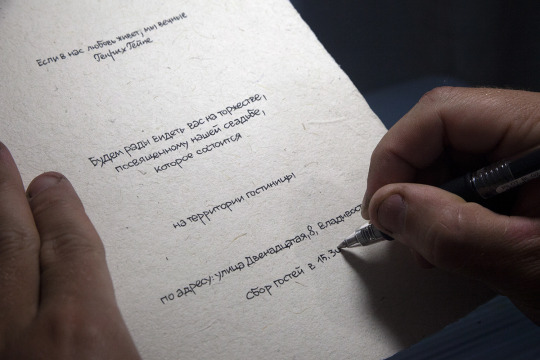 Если в нас любовь живет, мы вечные
Генрих Гейне
Будем рады видеть вас на торжестве,
посвященному нашей свадьбе,
которое состоится
на территории гостиницы
по адресу: улица Двенадцатая, 8, Владивост
сбор гостей в 15.3